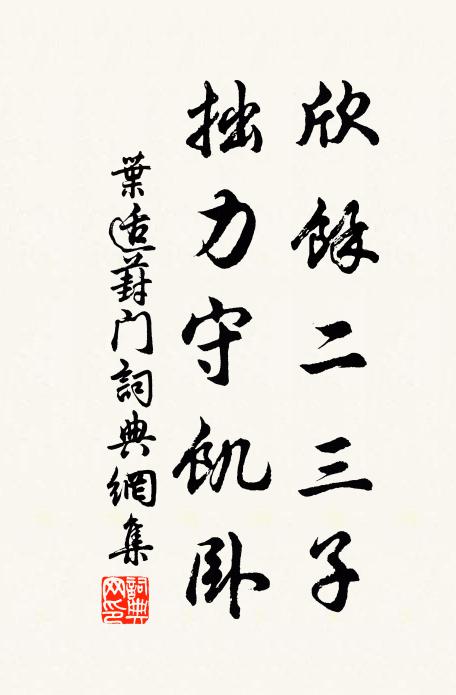 欣餘二三子
拙力守飢卧
葉適葑門詞典網集
詞典网印